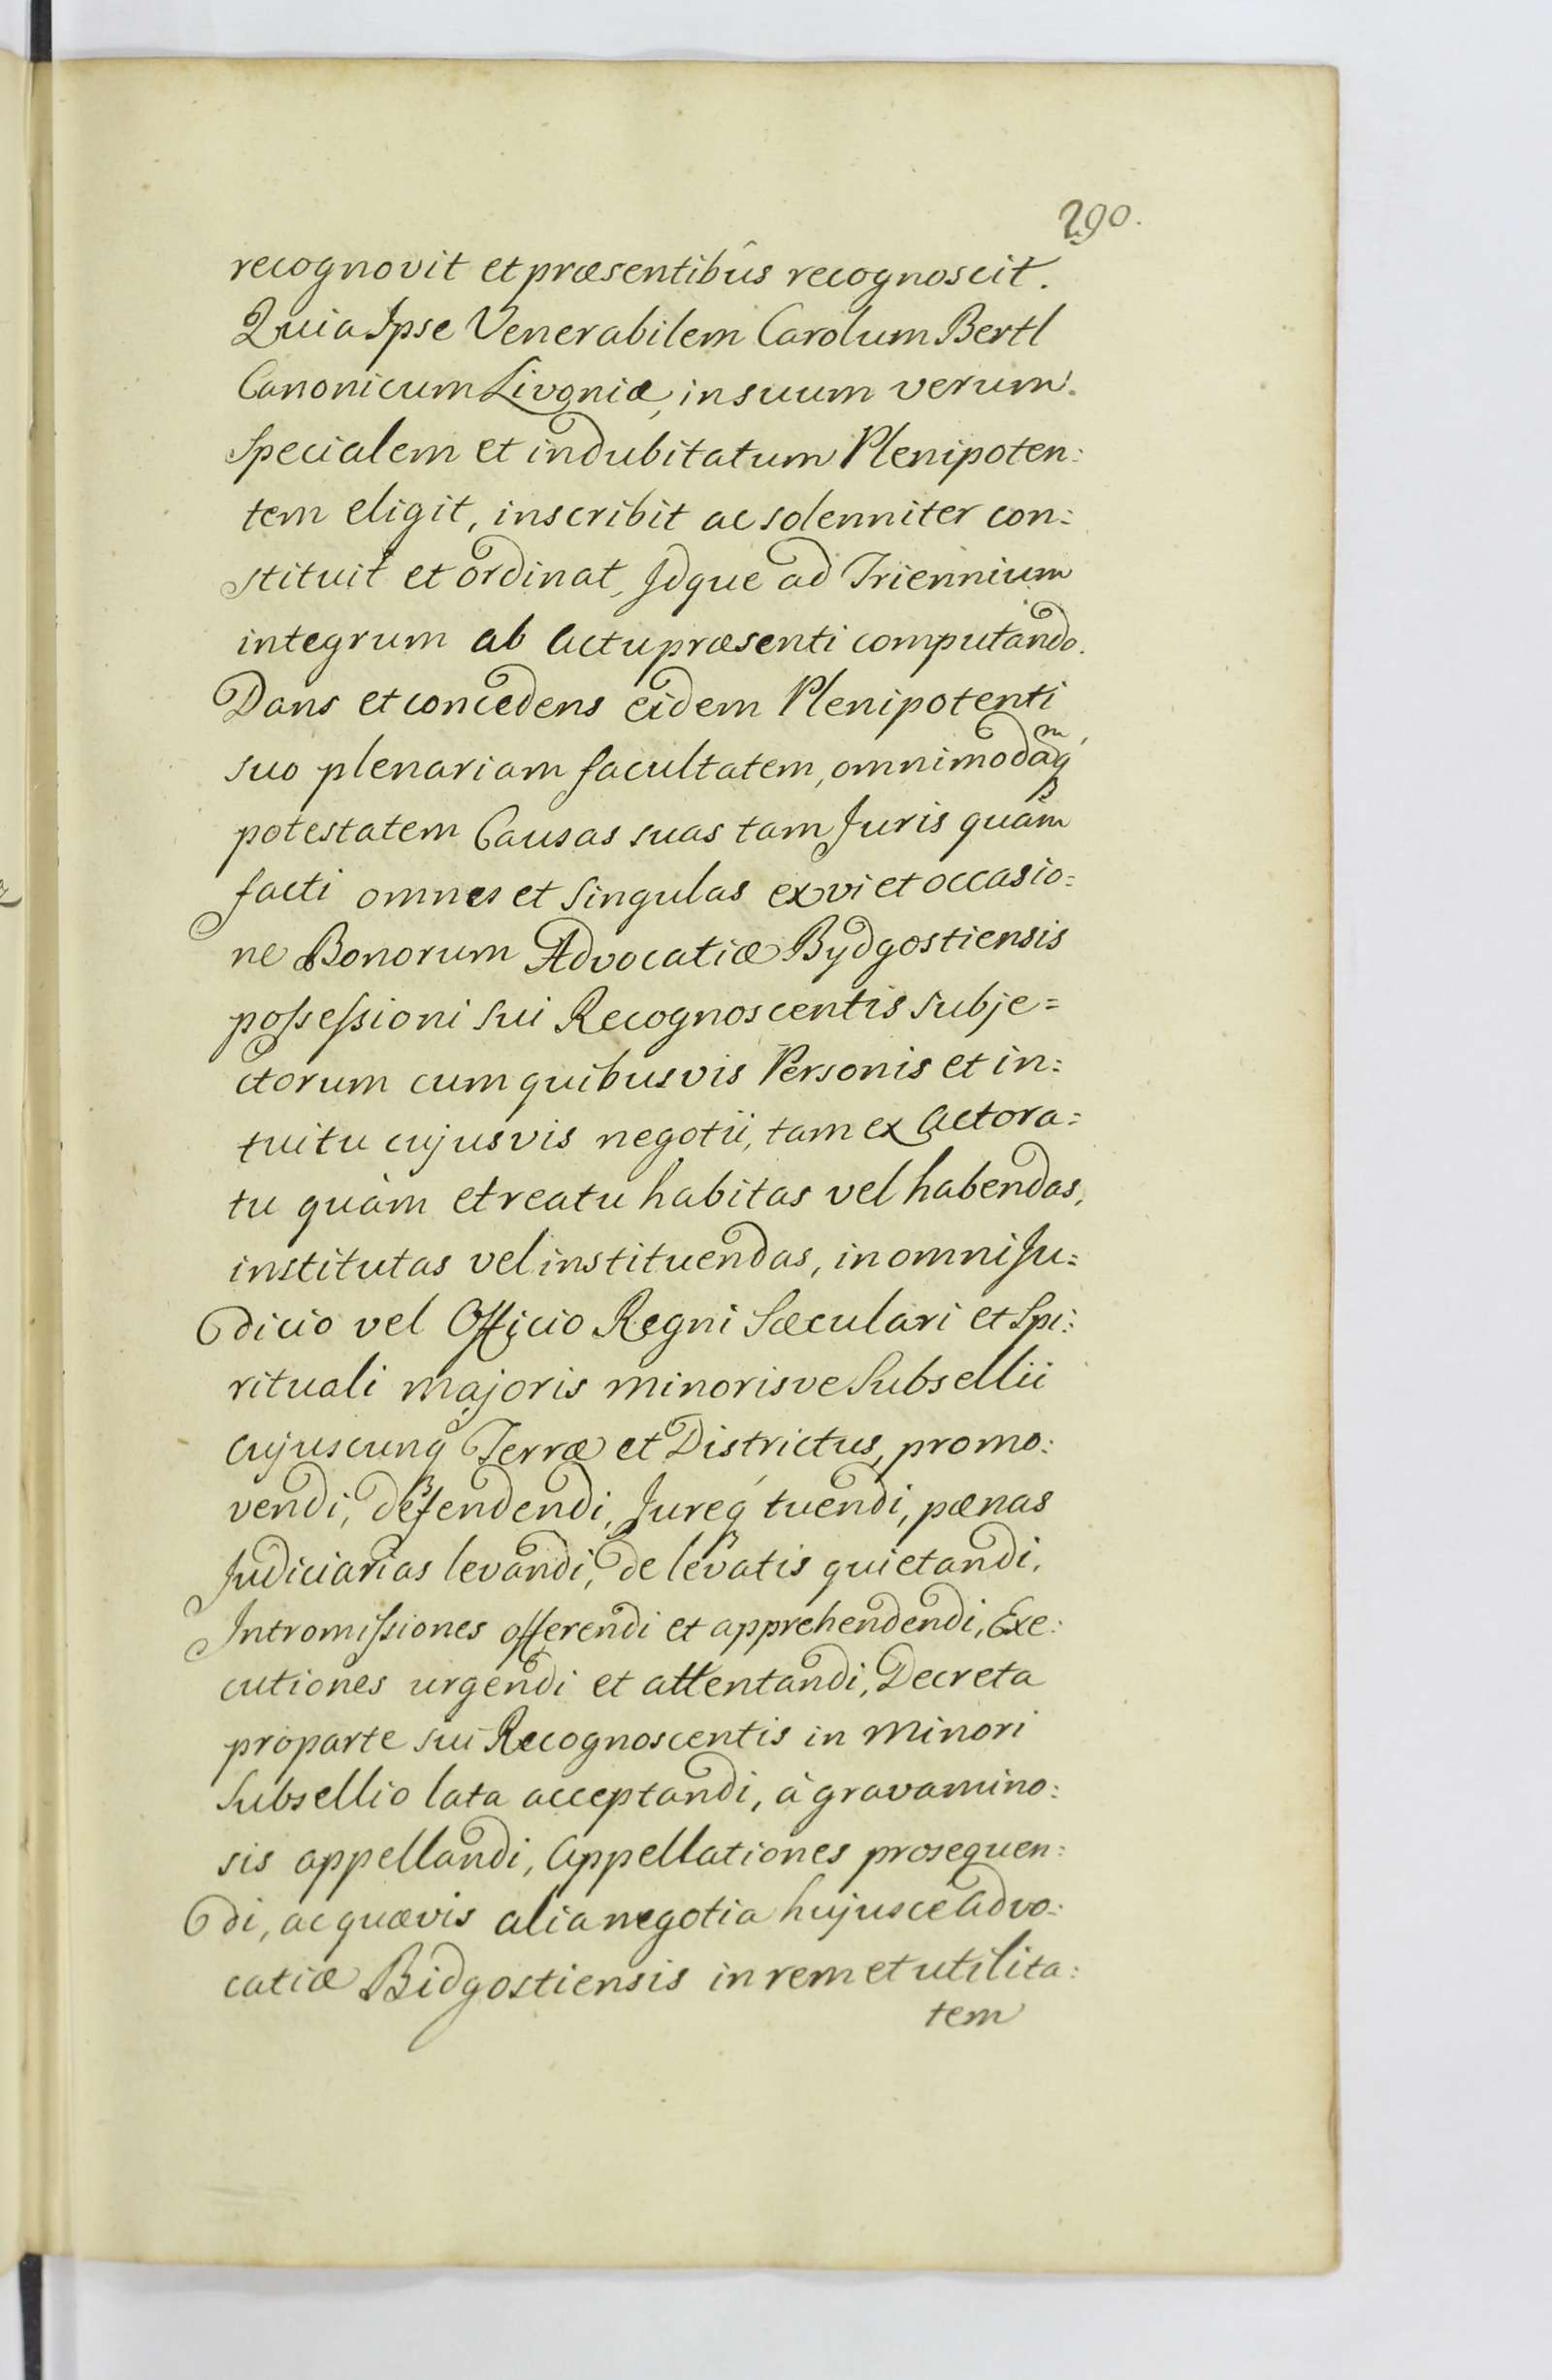 290.
recognovit et præsentibûs recognoscit.
Quia Ipse Venerabilem Carolum Bertl
Canonicum Livoniæ, in suum verum.
Specialem et indubitatum Plenipoten:
tem eligit, inscribit ac solenniter con:
stituit et ordinat, Idque ad Triennium
integrum ab Actu præsenti computando.
Dans et concedens eidem Plenipotenti
suo plenariam facultatem, omnimodamq́
potestatem Causas suas tam Juris quàm
facti omnes et Singulas ex vi et occasio=
ne Bonorum Advocatiæ Bydgostiensis
possessioni Sui Recognoscentis Subje=
ctorum cum quibusvis Personis et in:
tuitu cujusvis negotii, tam ex Actora=
tu quàm et reatu habitas vel habendas,
institutas vel instituendas, in omni Ju=
dicio vel Officio Regni Sæculari et Spi:
rituali majoris minorisve Subsellii
cujuscunq Terræ et Districtus, promo:
vendi, defendendi, Jureq́ tuendi, pænas
Judiciarias levandi, de levatis quietandi,
Intromissiones offerendi et apprehendendi, Exe:
cutiones urgendi et attentandi, Decreta
pro parte sui Recognoscentis in minori
Subsellio lata acceptandi, à gravamino:
sis appellandi, Appellationes prosequen:
di, ac quævis alia negotia hujusce Advo:
catiæ Bidgostiensis in rem et utilita:
tem